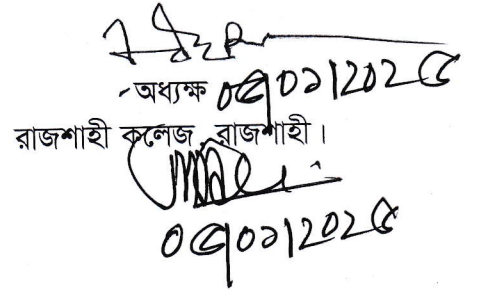 অধ্যক্ষ ০৫/০১/২০২৫
রাজশাহী কলেজ, রাজশাহী।
০৫/০১/২০২৫